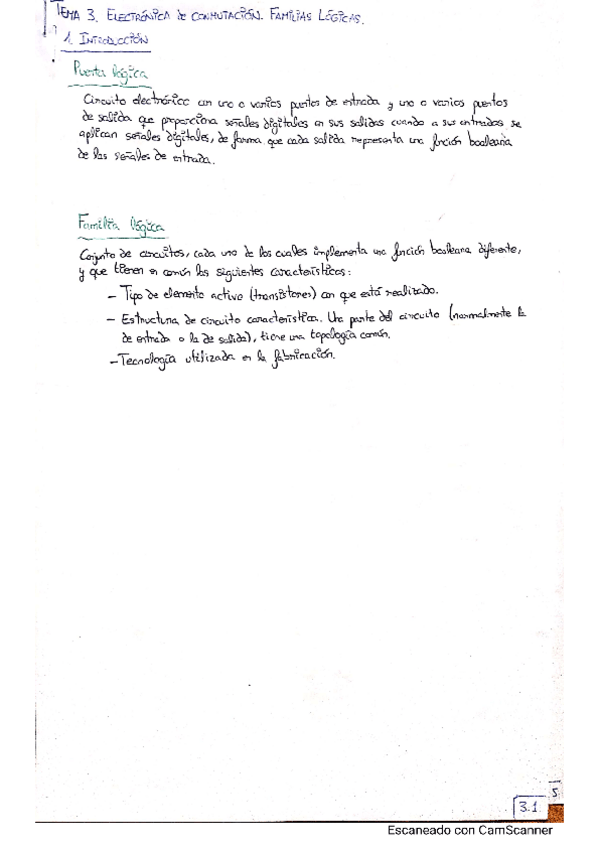 TEMA 3. ELECTRÓNICA DE CONMUTACIÓN. FAMILIAS LÓGICAS.
1. INTRODUCCIÓN
Puerta lógica
Circuito electrónico con uno o varios puertos de entrada y uno o varios puertos
de salida que proporciona señales digitales en sus salidas cuando a sus entradas se
aplican señales digitales, de forma que cada salida representa una función booleana
de las señales de entrada.
Familia lógica
Conjunto de circuitos, cada uno de los cuales implementa una función booleana diferente,
y que tienen en común las siguientes características:
- Tipo de elemento activo (transistores) con que está realizado.
- Estructura de circuito característica. Una parte del circuito (normalmente la
de entrada o la de salida), tiene una topología común.
- Tecnología utilizada en la fabricación.
5
3.1
Escaneado con CamScanner